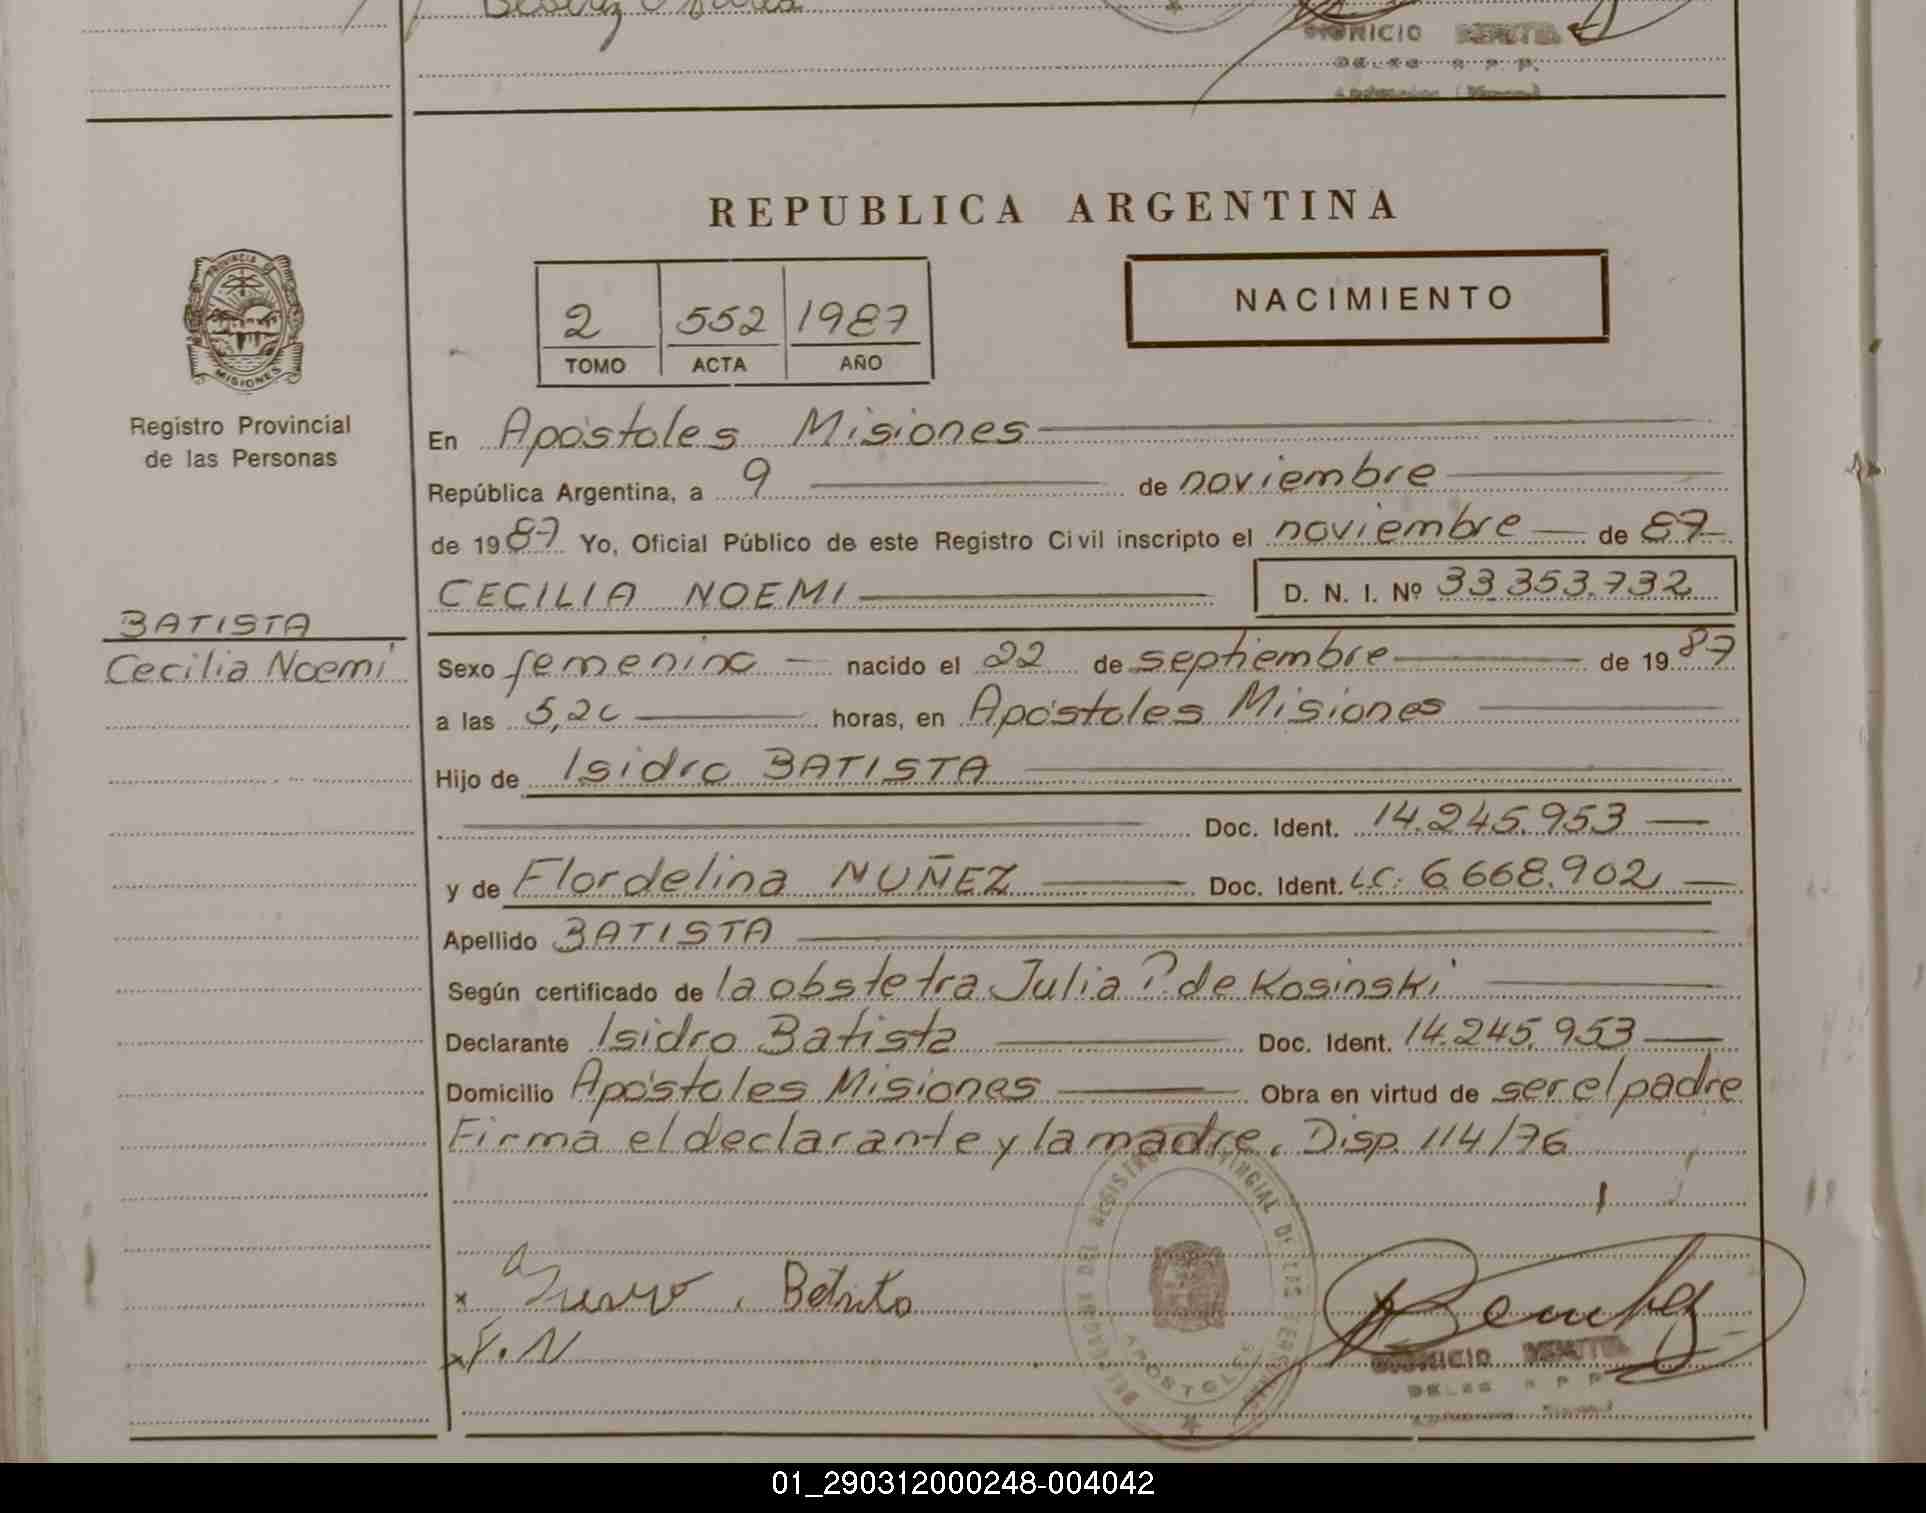 DIONICIO BENITEZ
DELEG R. P. P.
REPUBLICA ARGENTINA
NACIMIENTO
2 552 1987
TOMO ACTA AÑO
PROVINCIA DE
MISIONES
Registro Provincial
de las Personas
En Apóstoles Misiones
República Argentina, a 9 de noviembre
de 1987 Yo, Oficial Público de este Registro Civil inscripto el noviembre de 87
CECILIA NOEMI D. N. I. Nº 33.353.732
BATISTA
Cecilia Noemi
Sexo femenino nacido el 22 de septiembre de 1987
a las 5,20 horas, en Apóstoles Misiones
Hijo de Isidro BATISTA
Doc. Ident. 14.245.953
y de Flordelina NUÑEZ Doc. Ident. LC. 6.668.902
Apellido BATISTA
Según certificado de la obstetra Julia P. de Kosinski
Declarante Isidro Batista Doc. Ident. 14.245.953
Domicilio Apóstoles Misiones Obra en virtud de ser el padre
Firma el declarante y la madre. Disp. 114/76
DEL REGISTRO PROVINCIAL DE LAS PERSONAS
APOSTOLES
x
x F. N
DIONICIO BENITEZ
DELEG R P P
01_290312000248-004042